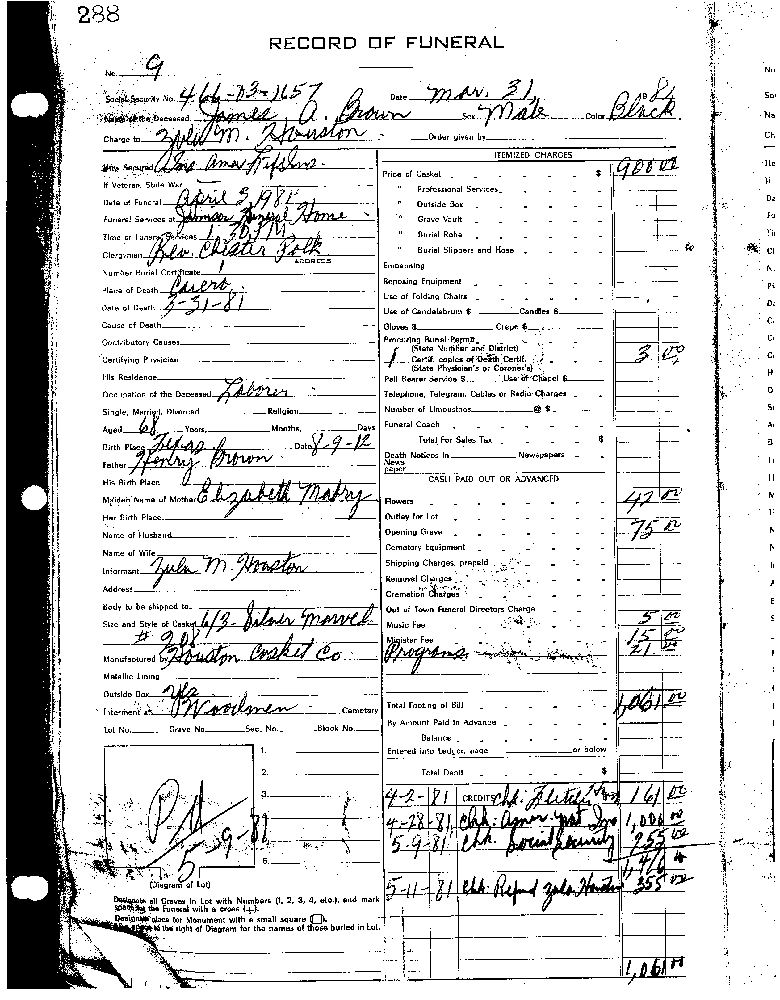 288
RECORD OF FUNERAL
No. 9
Social Security No. 466-03-1657 Date Mar. 31, 1981
Name of the Deceased James A. Brown Sex Male Color Black
Charge to Zula M. Houston Order given by
How Secured Ins. Amer
If Veteran, State War
Date of Funeral April 3, 1981
Funeral Services at Funeral Home
Time of Funeral Services 1:30 P.M.
Clergyman Rev. Chester Polk
ADDRESS
Number Burial Certificate 1
Place of Death Cuero
Date of Death 3-31-81
Cause of Death
Contributory Causes
Certifying Physician
His Residence
Occupation of the Deceased Laborer
Single, Married, Divorced Religion
Aged 68 Years, Months, Days
Birth Place Texas Date 8-9-12
Father Henry Brown
His Birth Place
Maiden Name of Mother Elizabeth Mabry
Her Birth Place
Name of Husband
Name of Wife
Informant Zula M. Houston
Address
Body to be shipped to
Size and Style of Casket 6/3 Silver
# 908
Manufactured by Houston Casket Co
Metallic Lining
Outside Box yes
Interment at Woodmen Cemetary
Lot No. Grave No. Sec. No. Block No.
1.
2.
3.
6.
5-9-81
(Diagram of Lot)
Designate all Graves in Lot with Numbers (1, 2, 3, 4, etc.), and mark
the Funeral with a cross (+).
Designate place for Monument with a small square (□).
to the right of Diagram for the names of those buried in Lot.
ITEMIZED CHARGES
Price of Casket $ 900 00
" Professional Services
" Outside Box
" Grave Vault
" Burial Robe
" Burial Slippers and Hose
Embalming
Reposing Equipment
Use of Folding Chairs
Use of Candelabrum $ Candles $
Gloves $ Crepe $
Procuring Burial Permit
(State Number and District)
1 Certif. copies of Death Certif. 3 00
(State Physician's or Coroner's)
Pall Bearer Service $ Use of Chapel $
Telephone, Telegram, Cables or Radio Charges
Number of Limousines @ $
Funeral Coach
Total For Sales Tax $
Death Notices In Newspapers
News
paper
CASH PAID OUT OR ADVANCED
Flowers 42 00
Outley for Lot
Opening Grave 75 00
Cemetary Equipment
Shipping Charges, prepaid
Removal Charges
Cremation Charges
Out of Town Funeral Directors Charge
Music Fee 5 00
Minister Fee 15 00
Programs 21 00
Total Footing of Bill 1,061 00
By Amount Paid in Advance
Balance
Entered into Ledger, page or below
Total Debit $
4-2-81 CREDITS Chk. 161 00
4-28-81 Chk. Amer. Ins 1,000 00
5-9-81 Chk. Social Security 255 00
1,416
5-11-81 Chk. Refund Zula Houston 355 00
1,061 00